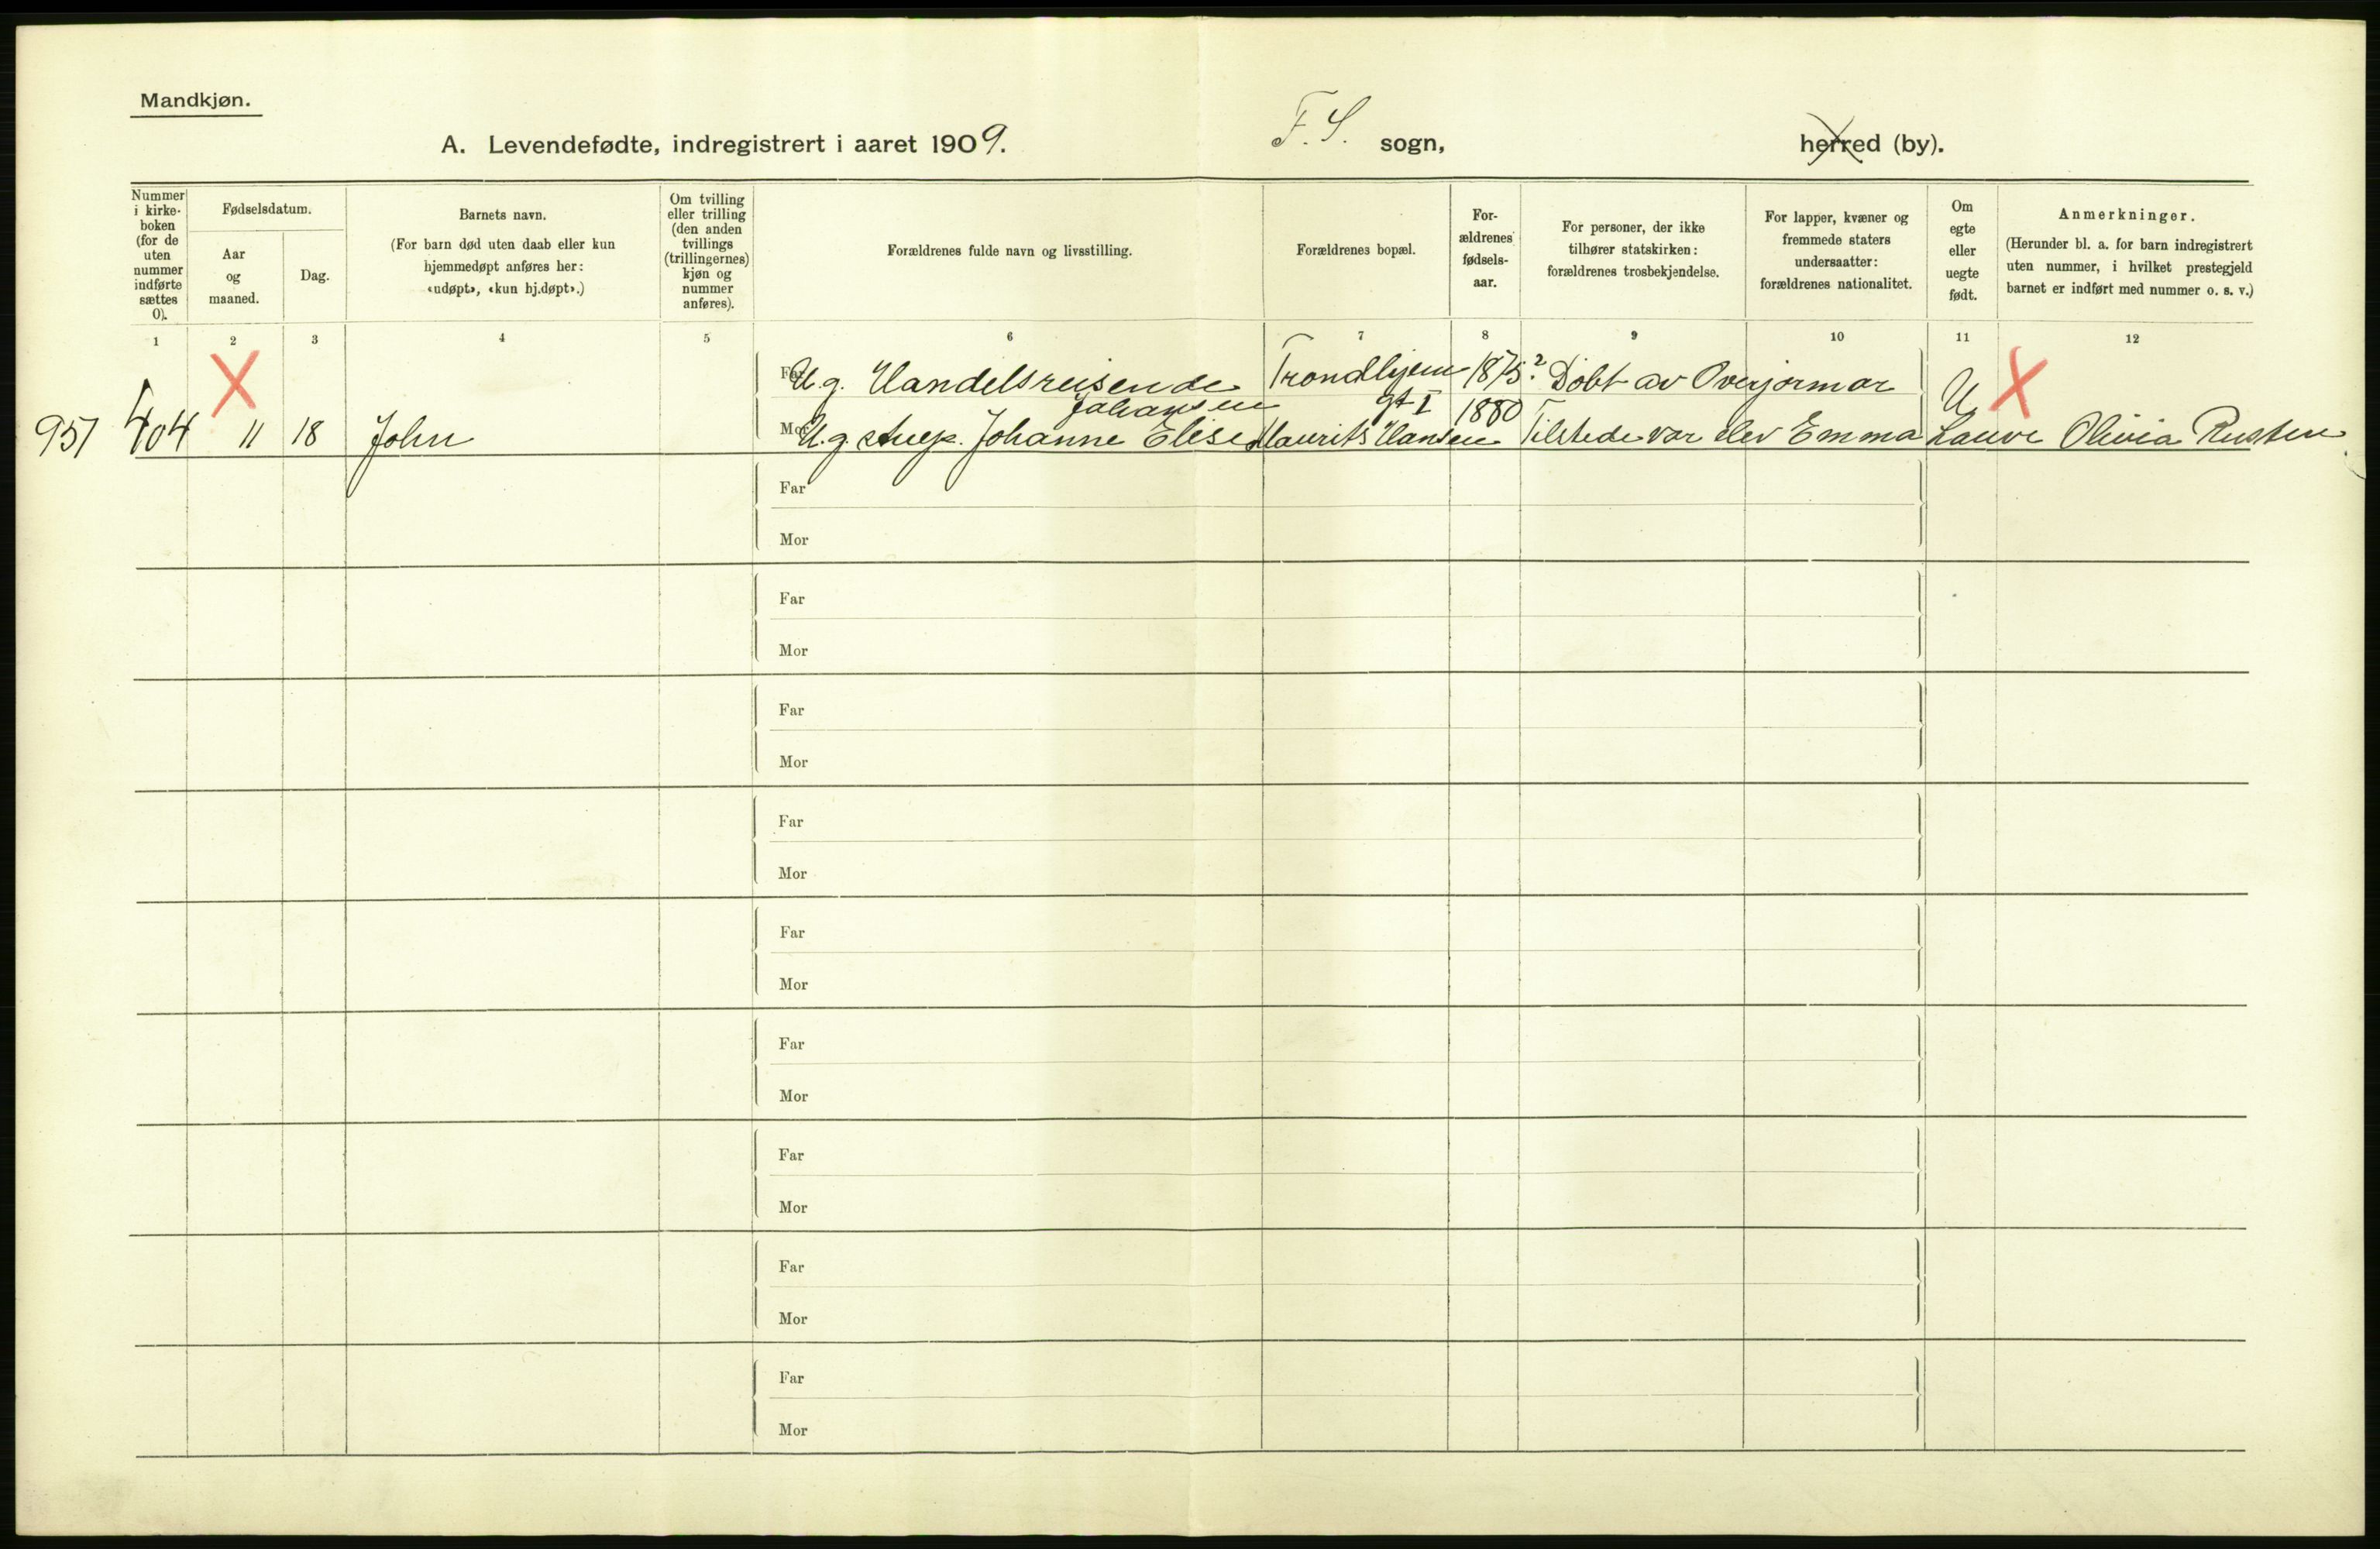 Mandkjøn.
A. Levendefødte, indregistrert i aaret 1909.
F. S. sogn,
herred (by).
Nummer i kirke- boken (for de uten nummer indførte sættes 0).
Fødselsdatum.
Aar og maaned.
Dag.
Barnets navn.
(For barn død uten daab eller kun hjemmedøpt anføres her: «udøpt», «kun hj.døpt».)
Om tvilling eller trilling (den anden tvillings (trillingernes) kjøn og nummer anføres).
Forældrenes fulde navn og livsstilling.
Forældrenes bopæl.
For- ældrenes fødsels- aar.
For personer, der ikke tilhører statskirken: forældrenes trosbekjendelse.
For lapper, kvæner og fremmede staters undersaatter: forældrenes nationalitet.
Om egte eller uegte født.
Anmerkninger.
(Herunder bl. a. for barn indregistrert uten nummer, i hvilket prestegjeld barnet er indført med nummer o. s. v.)
1 2 3 4 5 6 7 8 9 10 11 12
Far U. g. Handelsreisende Trondhjem 1875? Døbt av U.
Johansen gt I 1880
957 404 11 18 John Mor U. g. Johanne Elise Laurits Hansen Tilstede var elev Emma Olivia Rusten
Far
Mor
Far
Mor
Far
Mor
Far
Mor
Far
Mor
Far
Mor
Far
Mor
Far
Mor
Far
Mor